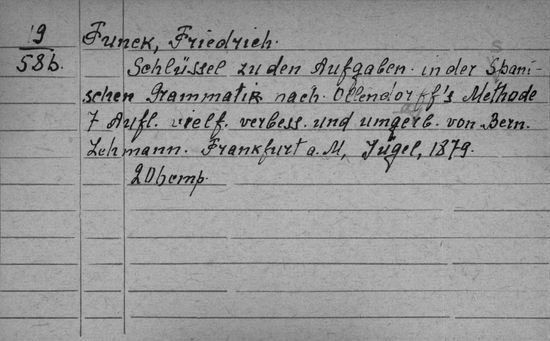 19
58b.
Funck, Friedrich.
Schlüssel zu den Aufgaben in der Spani-
schen Grammatik nach Ollendorff's Methode
7 Aufl. vielf. verbess. und umgearb. von Bern.
Lehmann. Frankfurt a. M, Jügel, 1879.